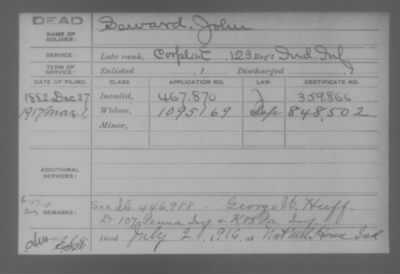 DEAD
NAME OF SOLDIER: Seward, John
SERVICE: Late rank, Corpl Co E, 123 Reg't Ind. Inf
TERM OF SERVICE: Enlisted , 1 Discharged , 1
DATE OF FILING. CLASS APPLICATION NO. LAW. CERTIFICATE NO.
1882 Dec 27 Invalid, 467,870 359,866
1917 Mar 1, Widow, 1095169 848,502
Minor,
ADDITIONAL SERVICES:
REMARKS: See 446988 - George W. Huff.
D-107 Penna Inf & K 83 Pa Inf
Died July 21, 1916, at Nat Mil Home Ind